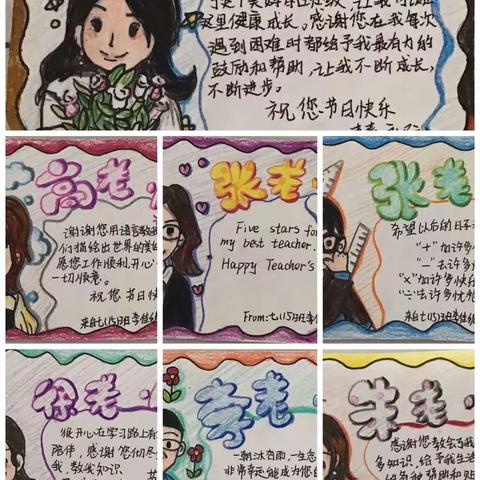 这里健康成长。感谢您在我每次
遇到困难时都给予我最有力的
鼓励和帮助，让我不断成长，
不断进步。
祝您节日快乐
高老
谢谢您用语言教
们描绘出世界的美
愿您工作顺利，开心
一切惬意。
祝您节日快
来自七(15)班李佳
张老
Five stars for
my best teacher.
Happy Teacher's
From:七(15)班李佳
张老
希望以后的日子
"+"加许多
"－"去许多
"×"加许多快
"÷"去许多忧
来自七(15)班李佳
徐老
很开心在学习路上有
陪伴，感谢您彻尽
我，教我知识
李老
一朝沐杏雨，一生念
非常幸运能成为您的
朱老
感谢您教会了我
多知识，给予我生活
的各种帮助和